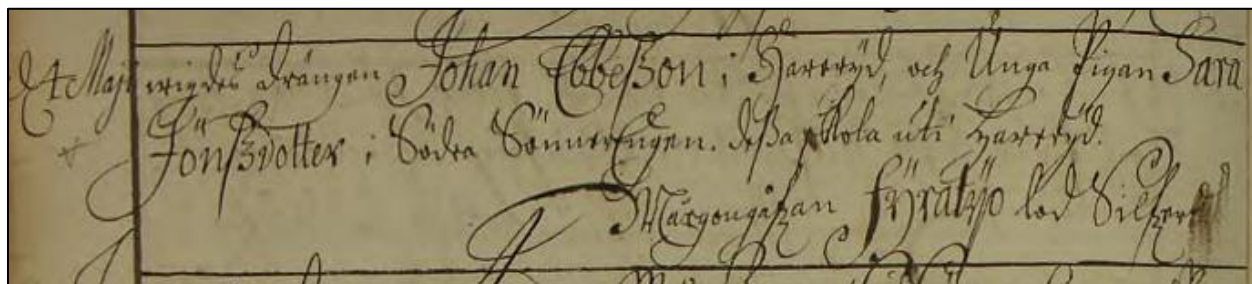 d. 4 Maji wigdes Drängen Johan Ebbeßon i Harerÿd, och Unga Pigan Sara
Jönßdotter i Södra Sönnerengen. deßa skola uti Harerÿd.
Morgongåfwan fÿratÿo lod Silfwer